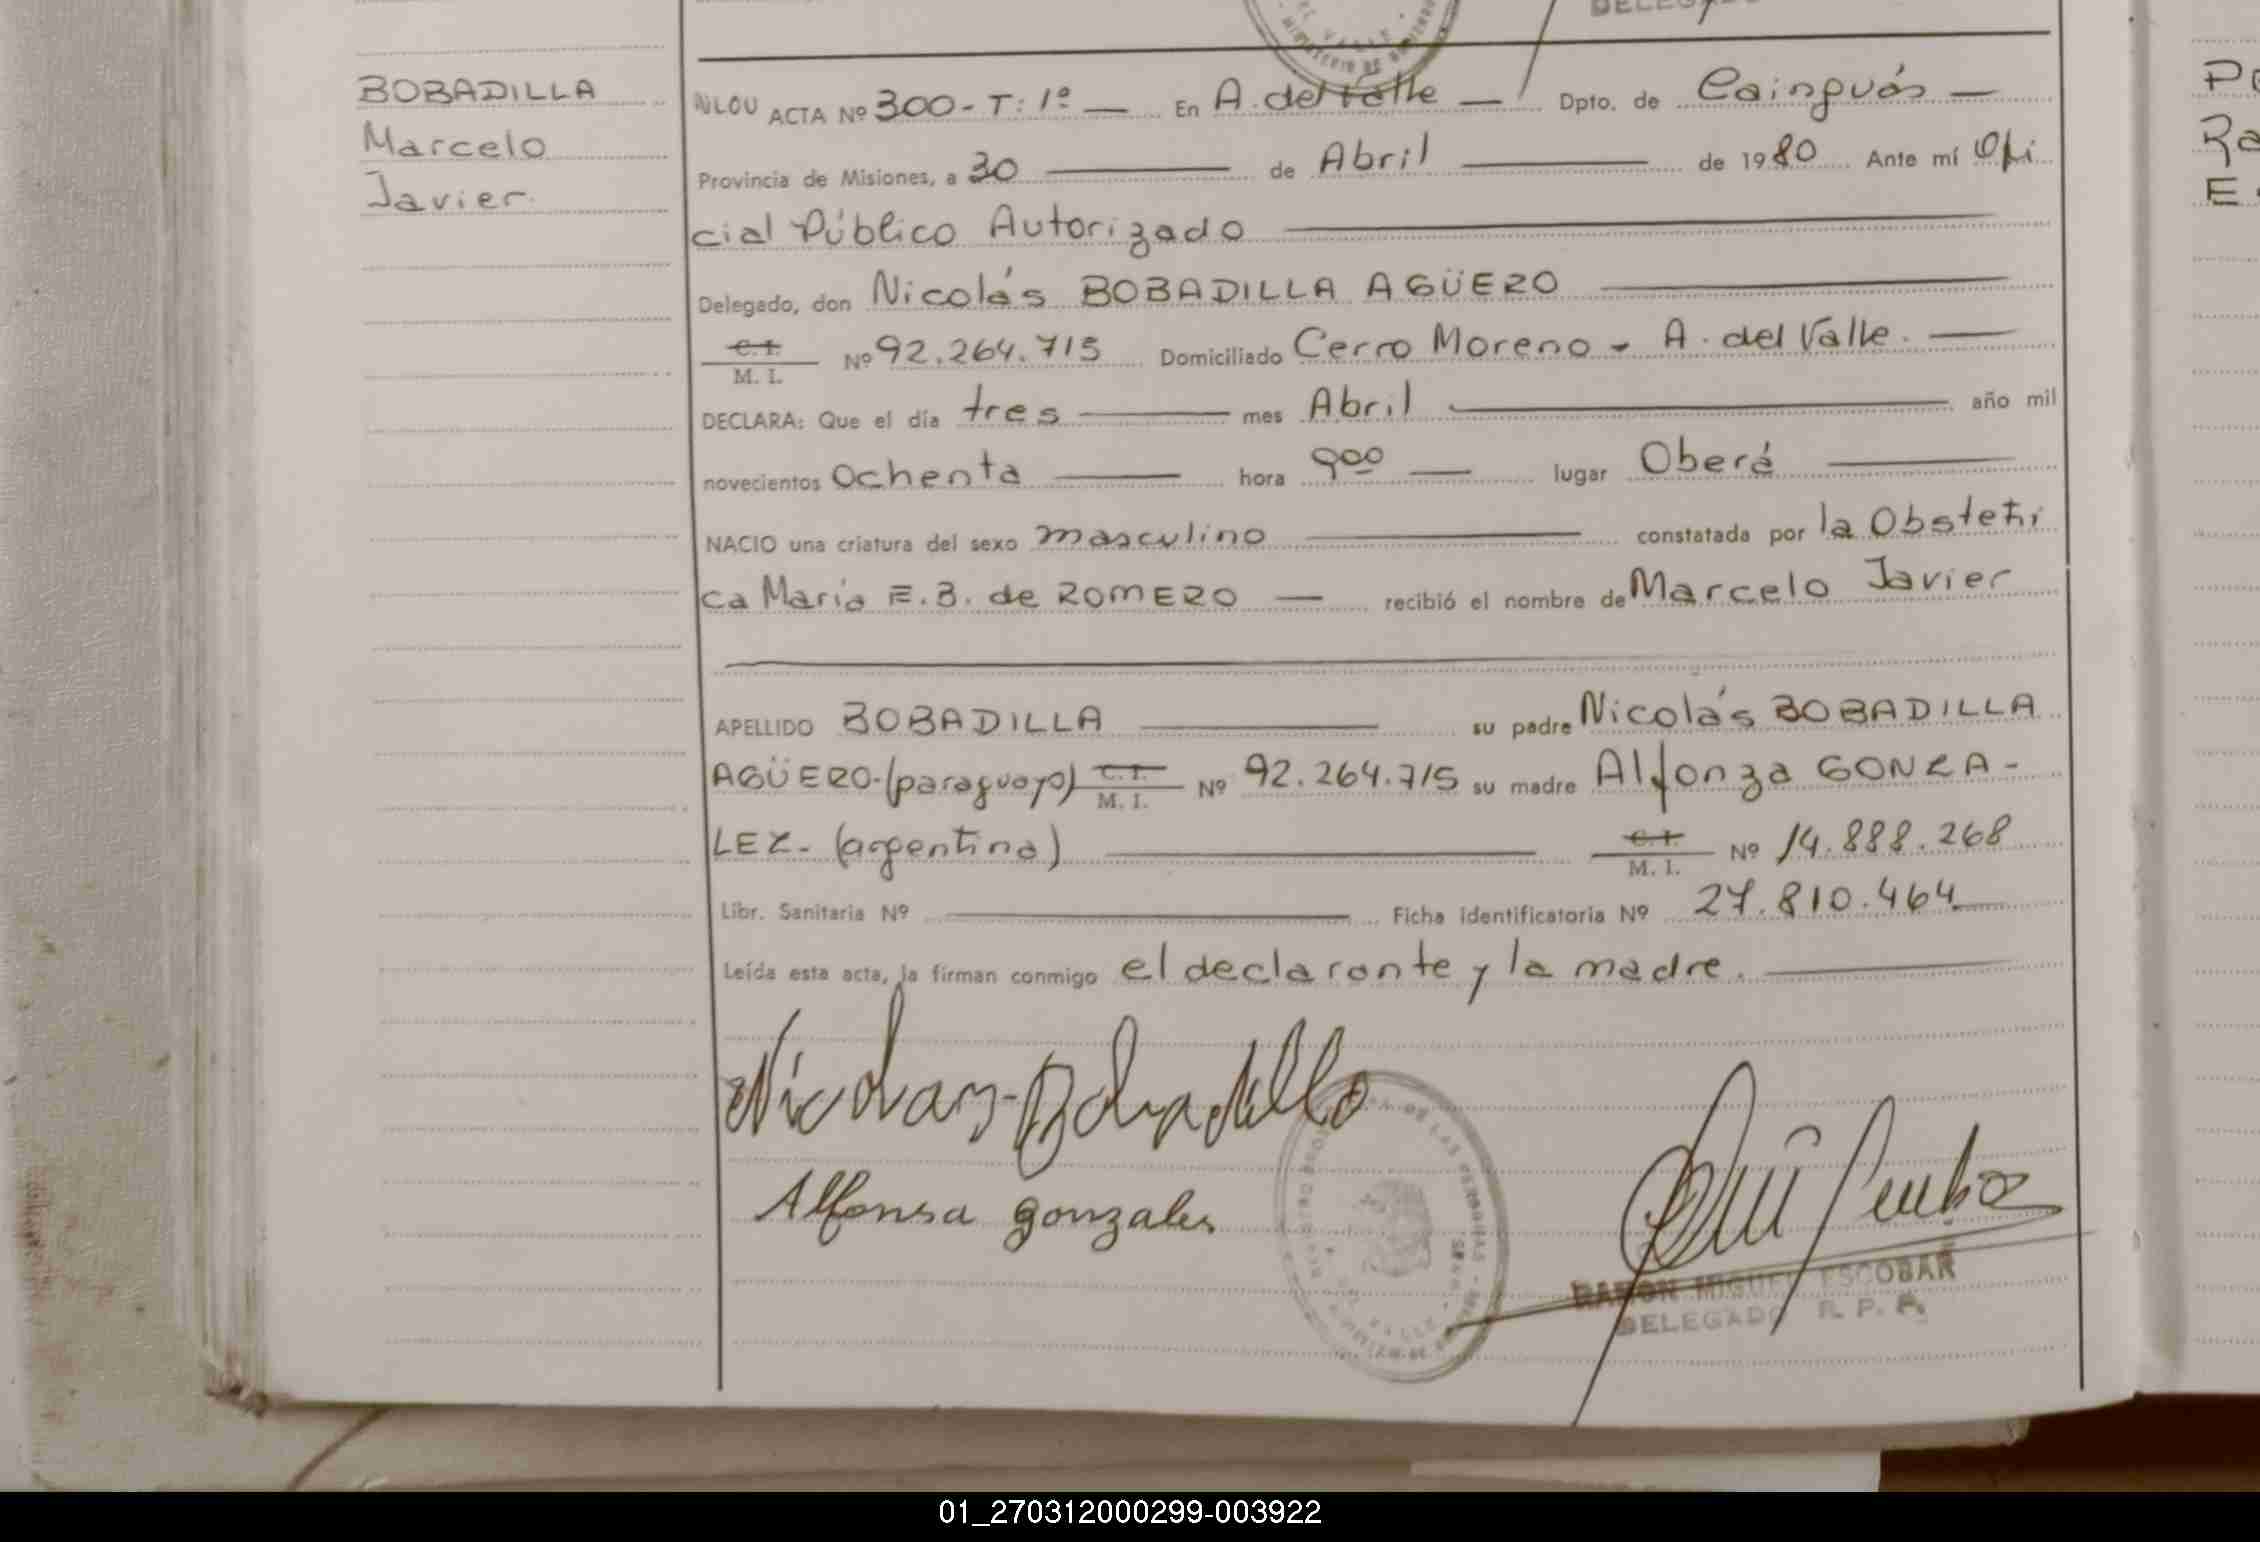 BOBADILLA
Marcelo
Javier.
ACTA Nº 300-T: 1º — En A. del Valle — Dpto. de Cainguás —
Provincia de Misiones, a 30 — de Abril — de 1980 Ante mí Ofi
cial Público Autorizado —
Delegado, don Nicolás BOBADILLA AGÜERO —
C. I.
M. I. Nº 92.264.715 Domiciliado Cerro Moreno - A. del Valle. —
DECLARA: Que el día tres — mes Abril — año mil
novecientos Ochenta — hora 9ºº — lugar Oberá —
NACIO una criatura del sexo masculino — constatada por la Obstetri
ca María E.B. de ROMERO — recibió el nombre de Marcelo Javier
APELLIDO BOBADILLA — su padre Nicolás BOBADILLA
AGÜERO-(paraguayo) C. I.
M. I. Nº 92.264.715 su madre Alfonza GONZA-
LEZ- (argentina) — C. I.
M. I. Nº 14.888.268
Libr. Sanitaria Nº — Ficha identificatoria Nº 27.810.464
Leída esta acta, la firman conmigo el declarante y la madre. —
Nicolas Bobadilla
Alfonsa gonzales
RAMON MIGUEL ESCOBAR
DELEGADO R. P. P.
Po
Ra
E
01_270312000299-003922